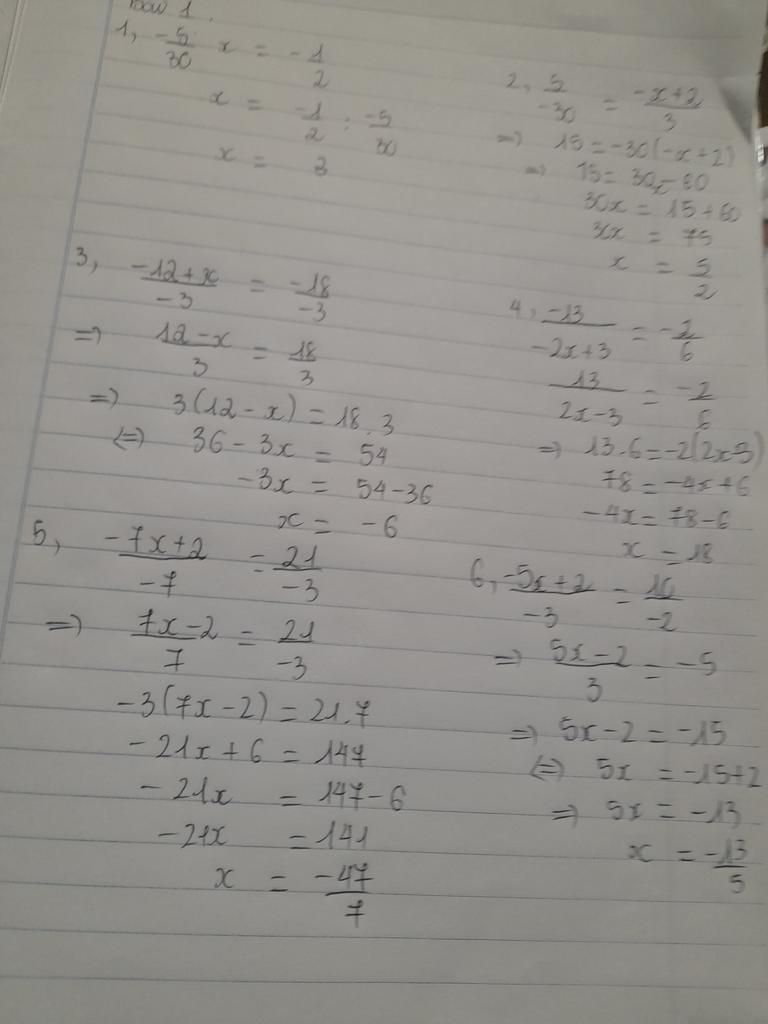 1, -5/30 x = -1/2
x = -1/2 : -5/30
x = 3
2, 5/-30 = -x+2/3
=> 15 = -30(-x+2)
=> 15 = 30x - 60
30x = 15+60
30x = 75
x = 5/2
3, -12+x/-3 = -18/-3
=> 12-x/3 = 18/3
=> 3(12-x) = 18.3
<=> 36-3x = 54
-3x = 54-36
x = -6
4, -13/-2x+3 = -2/6
13/2x-3 = -2/6
=> 13.6 = -2(2x-3)
78 = -4x+6
-4x = 78-6
x = 18
5, -7x+2/-7 = 21/-3
=> 7x-2/7 = 21/-3
-3(7x-2) = 21.7
-21x+6 = 147
-21x = 147-6
-21x = 141
x = -47/7
6, -5x+2/-3 = 10/-2
=> 5x-2/3 = -5
=> 5x-2 = -15
<=> 5x = -15+2
=> 5x = -13
x = -13/5